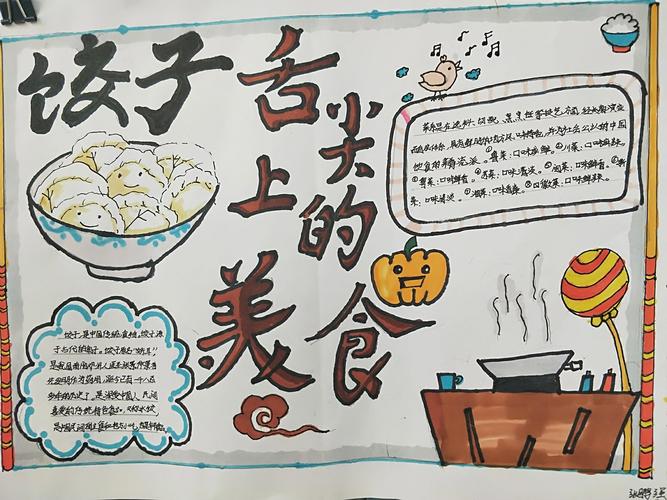 饺子
舌尖上的美食
菜系是在选料、切配、烹饪等技艺方面,经长期演变
而自成体系,具有鲜明的地方风味特色,并为社会公认的中国
饮食的菜肴流派。①鲁菜:口味咸鲜。②川菜:口味麻辣。
③粤菜:口味鲜香。④苏菜:口味清淡。⑤闽菜:口味鲜香。⑥浙
菜:口味清淡。⑦湘菜:口味香辣。⑧徽菜:口味鲜辣。
饺子,是中国传统食物,饺子源
于古代的角子。饺子原名"娇耳",
是我国
历史了。是深受中国人民
喜爱的传统特色食品,又称水饺,
是中国民间的主食和地方小吃,